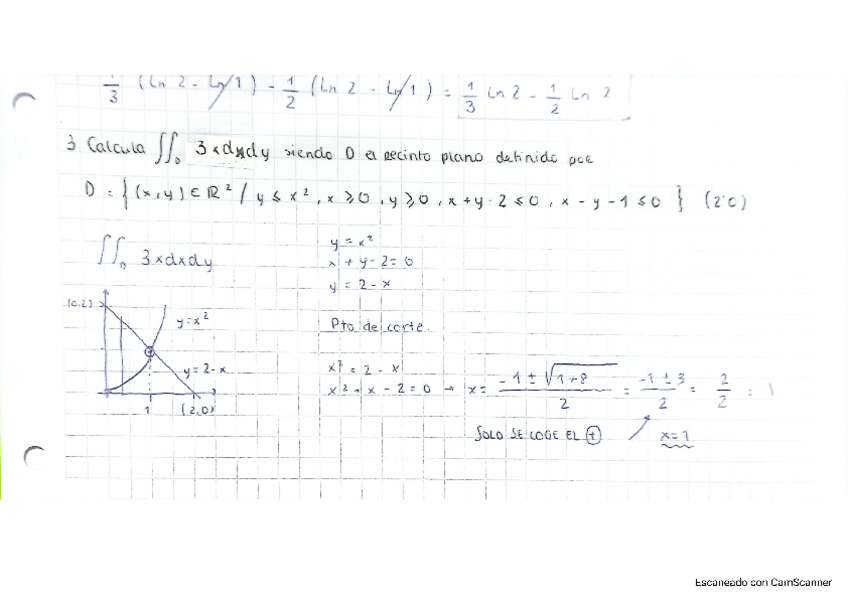 1/3 (Ln 2 - Ln 1) - 1/2 (Ln 2 - Ln 1) = 1/3 Ln 2 - 1/2 Ln 2
3 Calcula ∬_D 3xdxdy siendo D el recinto plano definido por
D = {(x,y) ∈ ℝ² / y ≤ x², x ≥ 0, y ≥ 0, x + y - 2 ≤ 0, x - y - 1 ≤ 0} (2'0)
∬_D 3xdxdy
y = x²
x + y - 2 = 0
y = 2 - x
(0,2)
y = x²
y = 2 - x
1 (2,0)
Pto de corte.
x² = 2 - x
x² + x - 2 = 0 → x = (-1 ± √(1+8))/2 = (-1 ± 3)/2 = 2/2 = 1
SOLO SE COGE EL ⊕ x = 1
Escaneado con CamScanner